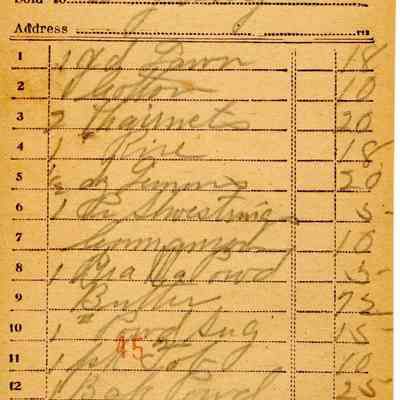 Sold to
Address
1 1 yd Lawn 18
2 1 Cotton 10
3 2 Hairnets 20
4 1 18
5 ½ dz Lemons 20
6 1 Pr Shoestring 5
7 Cinnamon 10
8 1 Powd 5
9 Butter 75
10 1 " Powd Sug 15
11 1 10
45
12 1 Bak Powd 25